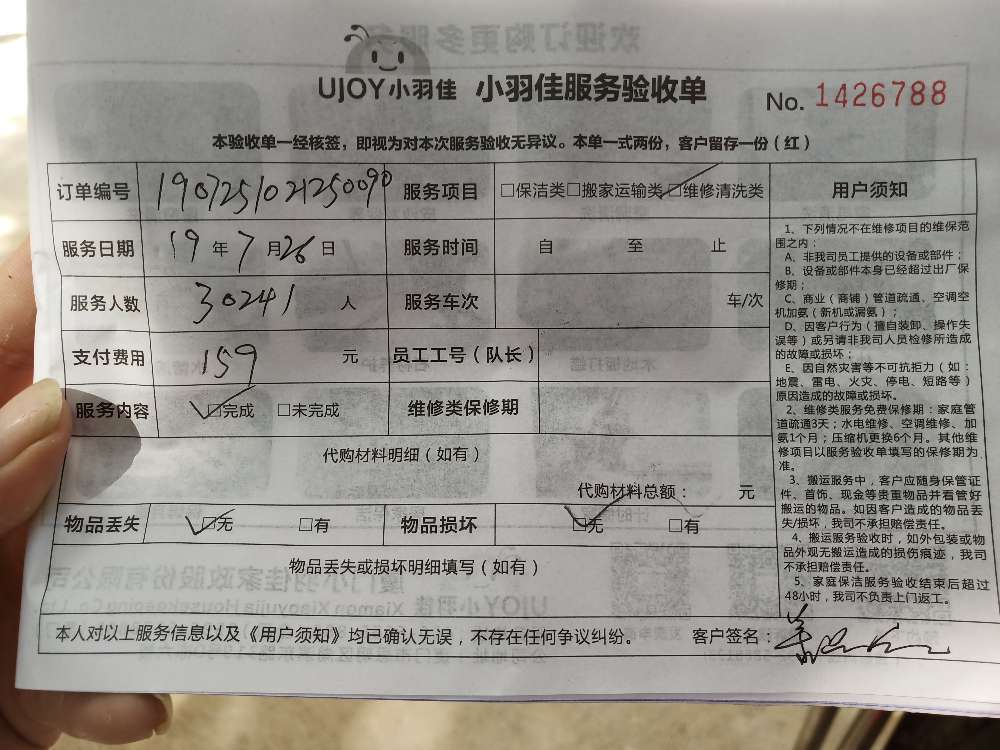 UJOY小羽佳 小羽佳服务验收单 No. 1426788
本验收单一经核签，即视为对本次服务验收无异议。本单一式两份，客户留存一份（红）
订单编号 1907251021250090 服务项目 □保洁类□搬家运输类□维修清洗类
服务日期 19 年 7 月 26 日 服务时间 自 至 止
服务人数 30241 人 服务车次 车/次
支付费用 159 元 员工工号（队长）
服务内容 □完成 □未完成 维修类保修期
代购材料明细（如有）
代购材料总额： 元
物品丢失 □无 □有 物品损坏 □无 □有
物品丢失或损坏明细填写（如有）
用户须知
1、下列情况不在维修项目的维保范
围之内：
A、非我司员工提供的设备或部件；
B、设备或部件本身已经超过出厂保
修期；
C、商业（商铺）管道疏通、空调空
机加氨（新机或漏氨）；
D、因客户行为（擅自装卸、操作失
误等）或另请非我司人员检修所造成
的故障或损坏；
E、因自然灾害等不可抗拒力（如：
地震、雷电、火灾、停电、短路等）
原因造成的故障或损坏。
2、维修类服务免费保修期：家庭管
道疏通3天；水电维修、空调维修、加
氨1个月；压缩机更换6个月。其他维
修项目以服务验收单填写的保修期为
准。
3、搬运服务中，客户应随身保管证
件、首饰、现金等贵重物品并看管好
搬运的物品。如因客户造成的物品丢
失/损坏，我司不承担赔偿责任。
4、搬运服务验收时，如外包装或物
品外观无搬运造成的损伤痕迹，我司
不承担赔偿责任。
5、家庭保洁服务验收结束后超过
48小时，我司不负责上门返工。
本人对以上服务信息以及《用户须知》均已确认无误，不存在任何争议纠纷。 客户签名：